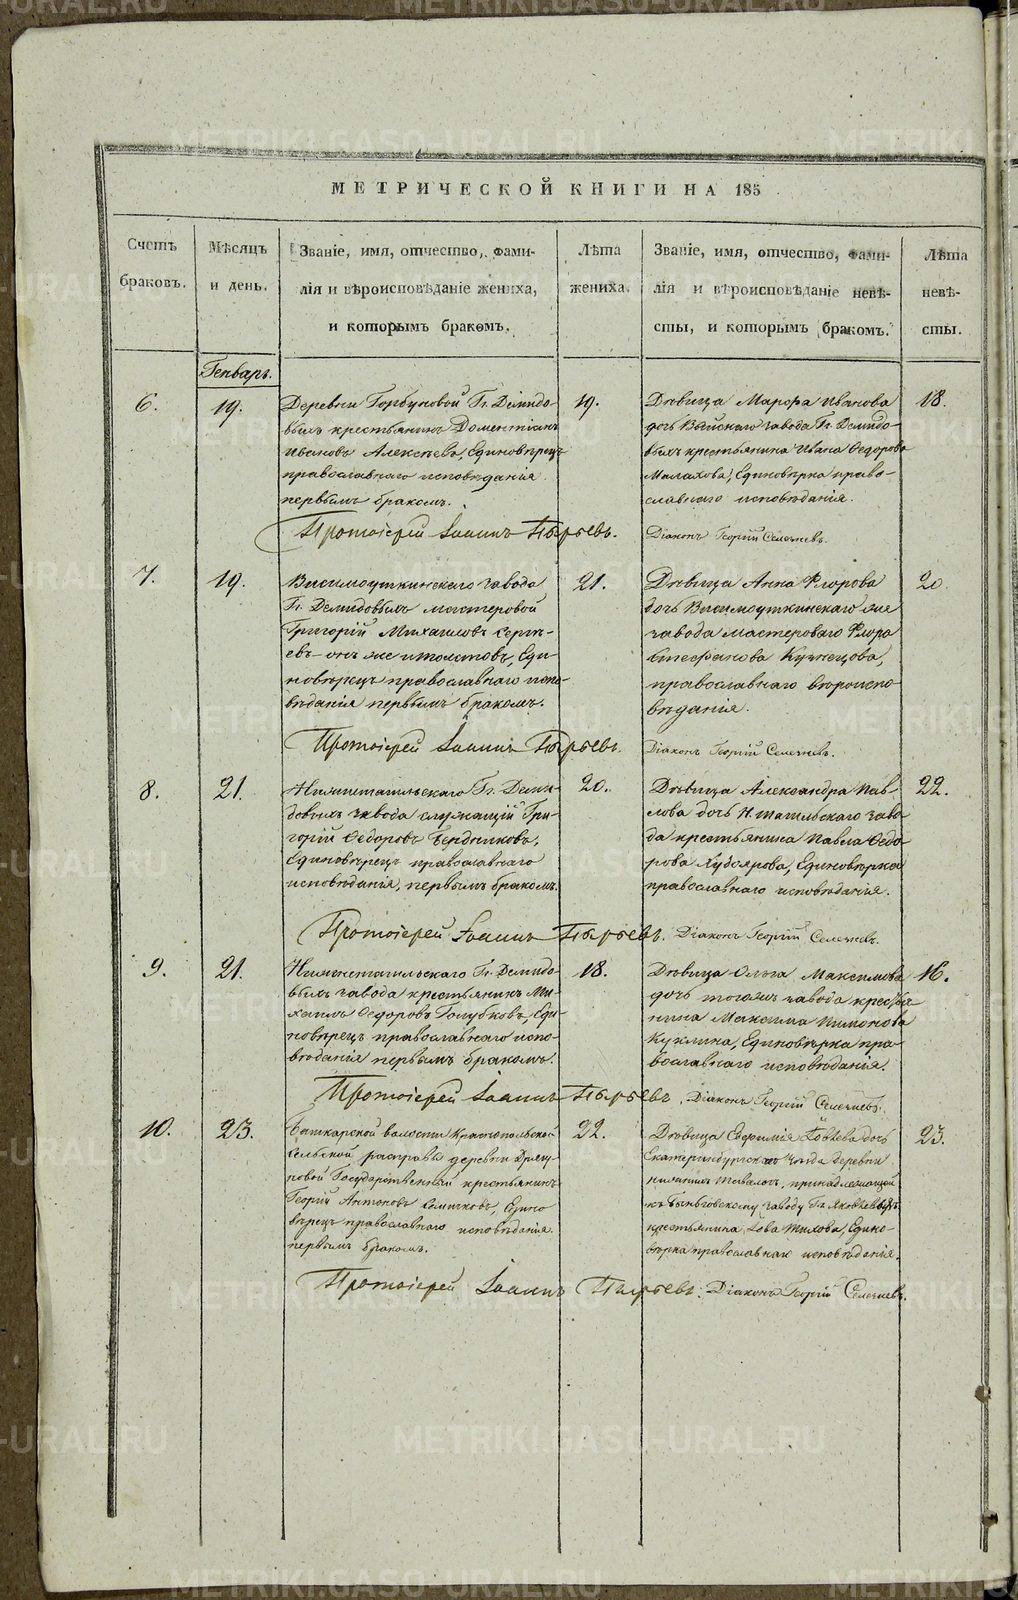 МЕТРИЧЕСКОЙ КНИГИ НА 185
Счетъ
браковъ.
Мѣсяцъ
и день.
Званіе, имя, отчество, фами-
лія и вѣроисповѣданіе жениха,
и которымъ бракомъ.
Лѣта
жениха.
Званіе, имя, отчество, фами-
лія и вѣроисповѣданіе невѣ-
сты, и которымъ бракомъ.
Лѣта
невѣ-
сты.
Генварь.
6.
19.
Деревни Горбуновой Гг. Демидо-
выхъ крестьянинъ Доментіанъ
Ивановъ Алексѣевъ, Единовѣрецъ
православнаго исповѣданія
первымъ бракомъ.
19.
Дѣвица Марфа Иванова
дочь Выйскаго завода Гг. Демидо-
выхъ крестьянина Ивана Ѳедорова
Малахова, Единовѣрка право-
славнаго исповѣданія.
18.
Протоіерей Іоаннъ Пырьевъ.
Діаконъ Георгій Селечневъ.
7.
19.
Висимоуткинскаго завода
Гг. Демидовыхъ мастеровой
Григорій Михаиловъ Сергѣ-
евъ онъ же и Толстовъ, Еди-
новѣрецъ православнаго испо-
вѣданія первымъ бракомъ.
21.
Дѣвица Анна Флорова
дочь Висимоуткинскаго же
завода мастероваго Флора
Стефанова Кузнецова,
православнаго вѣроиспо-
вѣданія.
20.
Протоіерей Іоаннъ Пырьевъ.
Діаконъ Георгій Селечневъ.
8.
21.
Нижнетагильскаго Гг. Деми-
довыхъ завода служащій Гри-
горій Ѳедоровъ Бердниковъ,
Единовѣрецъ православнаго
исповѣданія, первымъ бракомъ.
20.
Дѣвица Александра Пав-
лова дочь Н. тагильскаго заво-
да крестьянина Павла Ѳедо-
рова Худоярова, Единовѣрка
православнаго исповѣданія.
22.
Протоіерей Іоаннъ Пырьевъ. Діаконъ Георгій Селечневъ.
9.
21.
Нижнетагильскаго Гг. Демидо-
выхъ завода крестьянинъ Ми-
хаилъ Ѳедоровъ Голубковъ, Еди-
новѣрецъ православнаго испо-
вѣданія первымъ бракомъ.
18.
Дѣвица Ольга Максимова
дочь тогожъ завода крестья-
нина Максима Пимонова
Куклина, Единовѣрка пра-
вославнаго исповѣданія.
16.
Протоіерей Іоаннъ Пырьевъ. Діаконъ Георгій Селечневъ.
10.
23.
Башкарской волости Краснопольской
сельской расправы деревни
Государственный крестьянинъ
Георгій Антоновъ Едино
вѣрецъ православнаго исповѣданія
первымъ бракомъ.
22.
Дѣвица Евфимія дочь
Екатеринбургскаго уѣзда деревни
Нижнихъ Тавологъ, принадлежащей
къ Быньговскому заводу Гг. Яковлевыхъ
крестьянина Тихова, Едино-
вѣрка православнаго исповѣданія.
23.
Протоіерей Іоаннъ Пырьевъ. Діаконъ Георгій Селечневъ.
METRIKI.GASO-URAL.RU